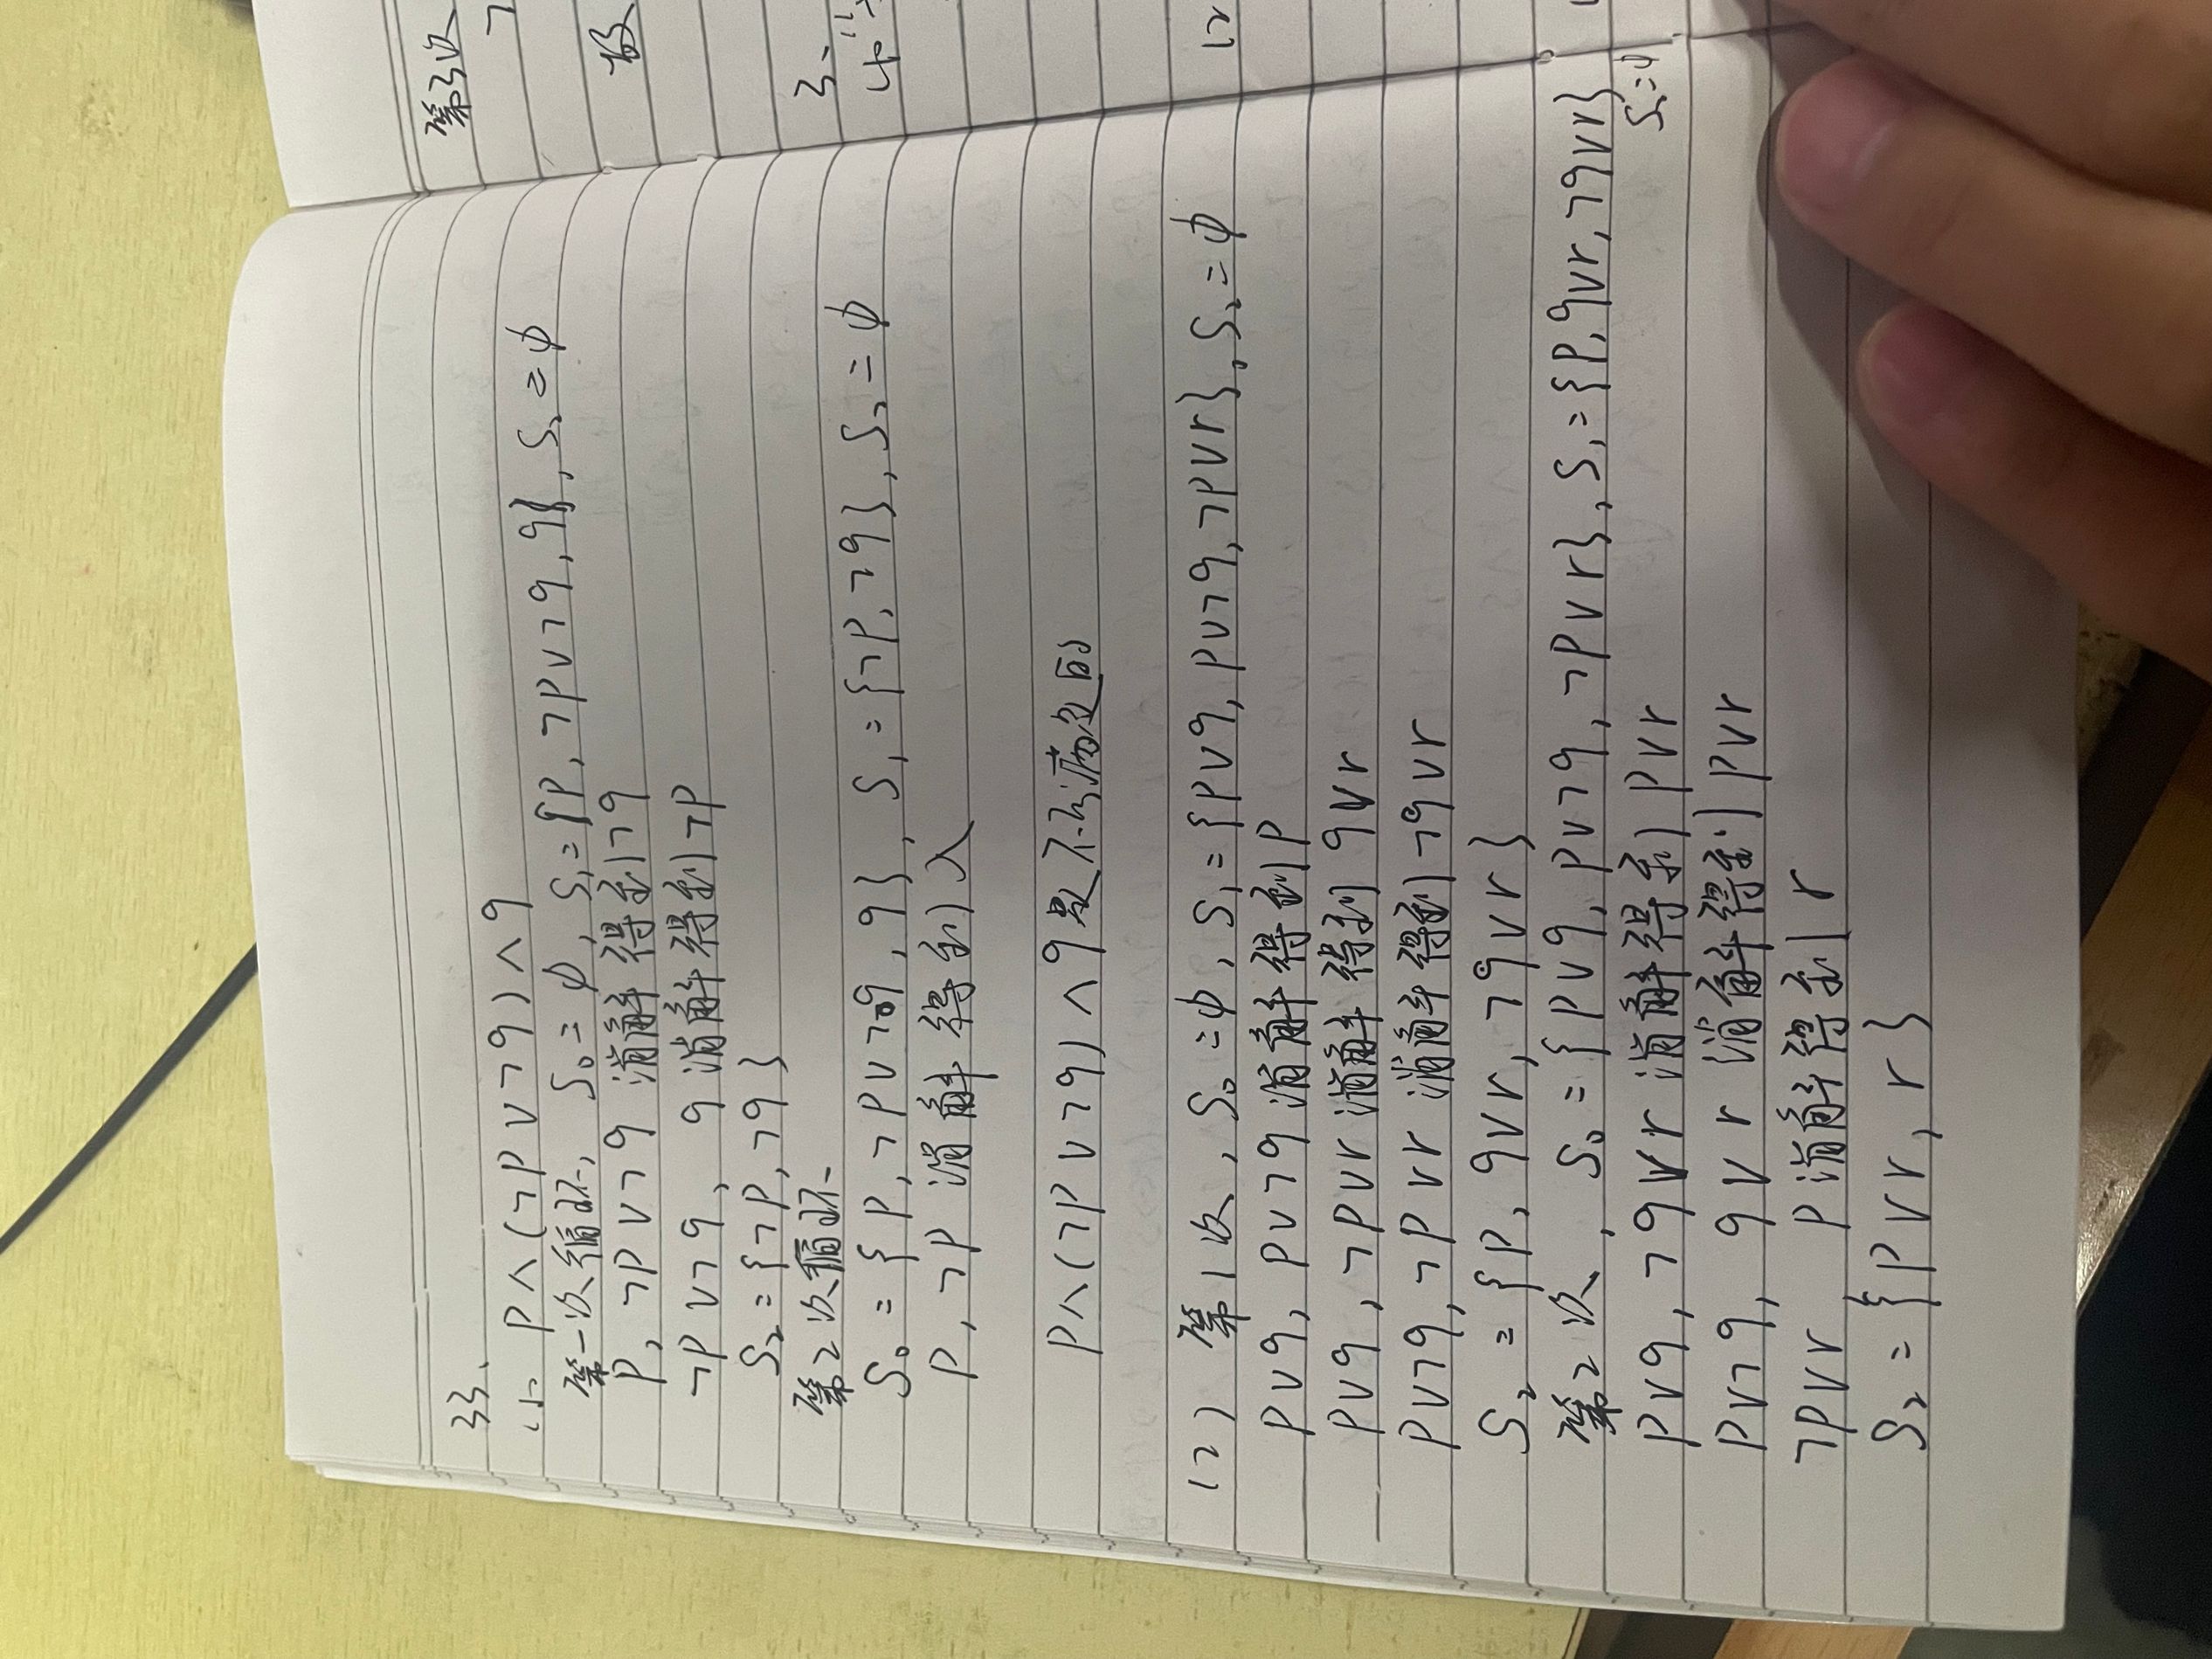 33、
(1). P∧(¬P∨¬q)∧q
第一次循环, S₀=∅, S₁={P,¬P∨¬q,q}, S₂=∅
P, ¬P∨¬q 消解得到¬q
¬P∨¬q, q消解得到¬P
S₂={¬P,¬q}
第2次循环
S₀={P,¬P∨¬q,q}, S₁={¬P,¬q}, S₂=∅
P,¬P 消解得到λ
P∧(¬P∨¬q)∧q是不可满足的
(2) 第1次, S₀=∅, S₁={P∨q, P∨¬q,¬P∨r}, S₂=∅
P∨q, P∨¬q消解得到P
P∨q,¬P∨r消解得到q∨r
P∨¬q,¬P∨r 消解得到¬q∨r
S₂={P, q∨r,¬q∨r}
第2次, S₀={P∨q, P∨¬q,¬P∨r}, S₁={P,q∨r,¬q∨r}
S₂=∅
P∨q,¬q∨r 消解得到P∨r
P∨¬q, q∨r 消解得到P∨r
¬P∨r, P消解得到r
S₂={P∨r, r}
第3次
¬
故
3、